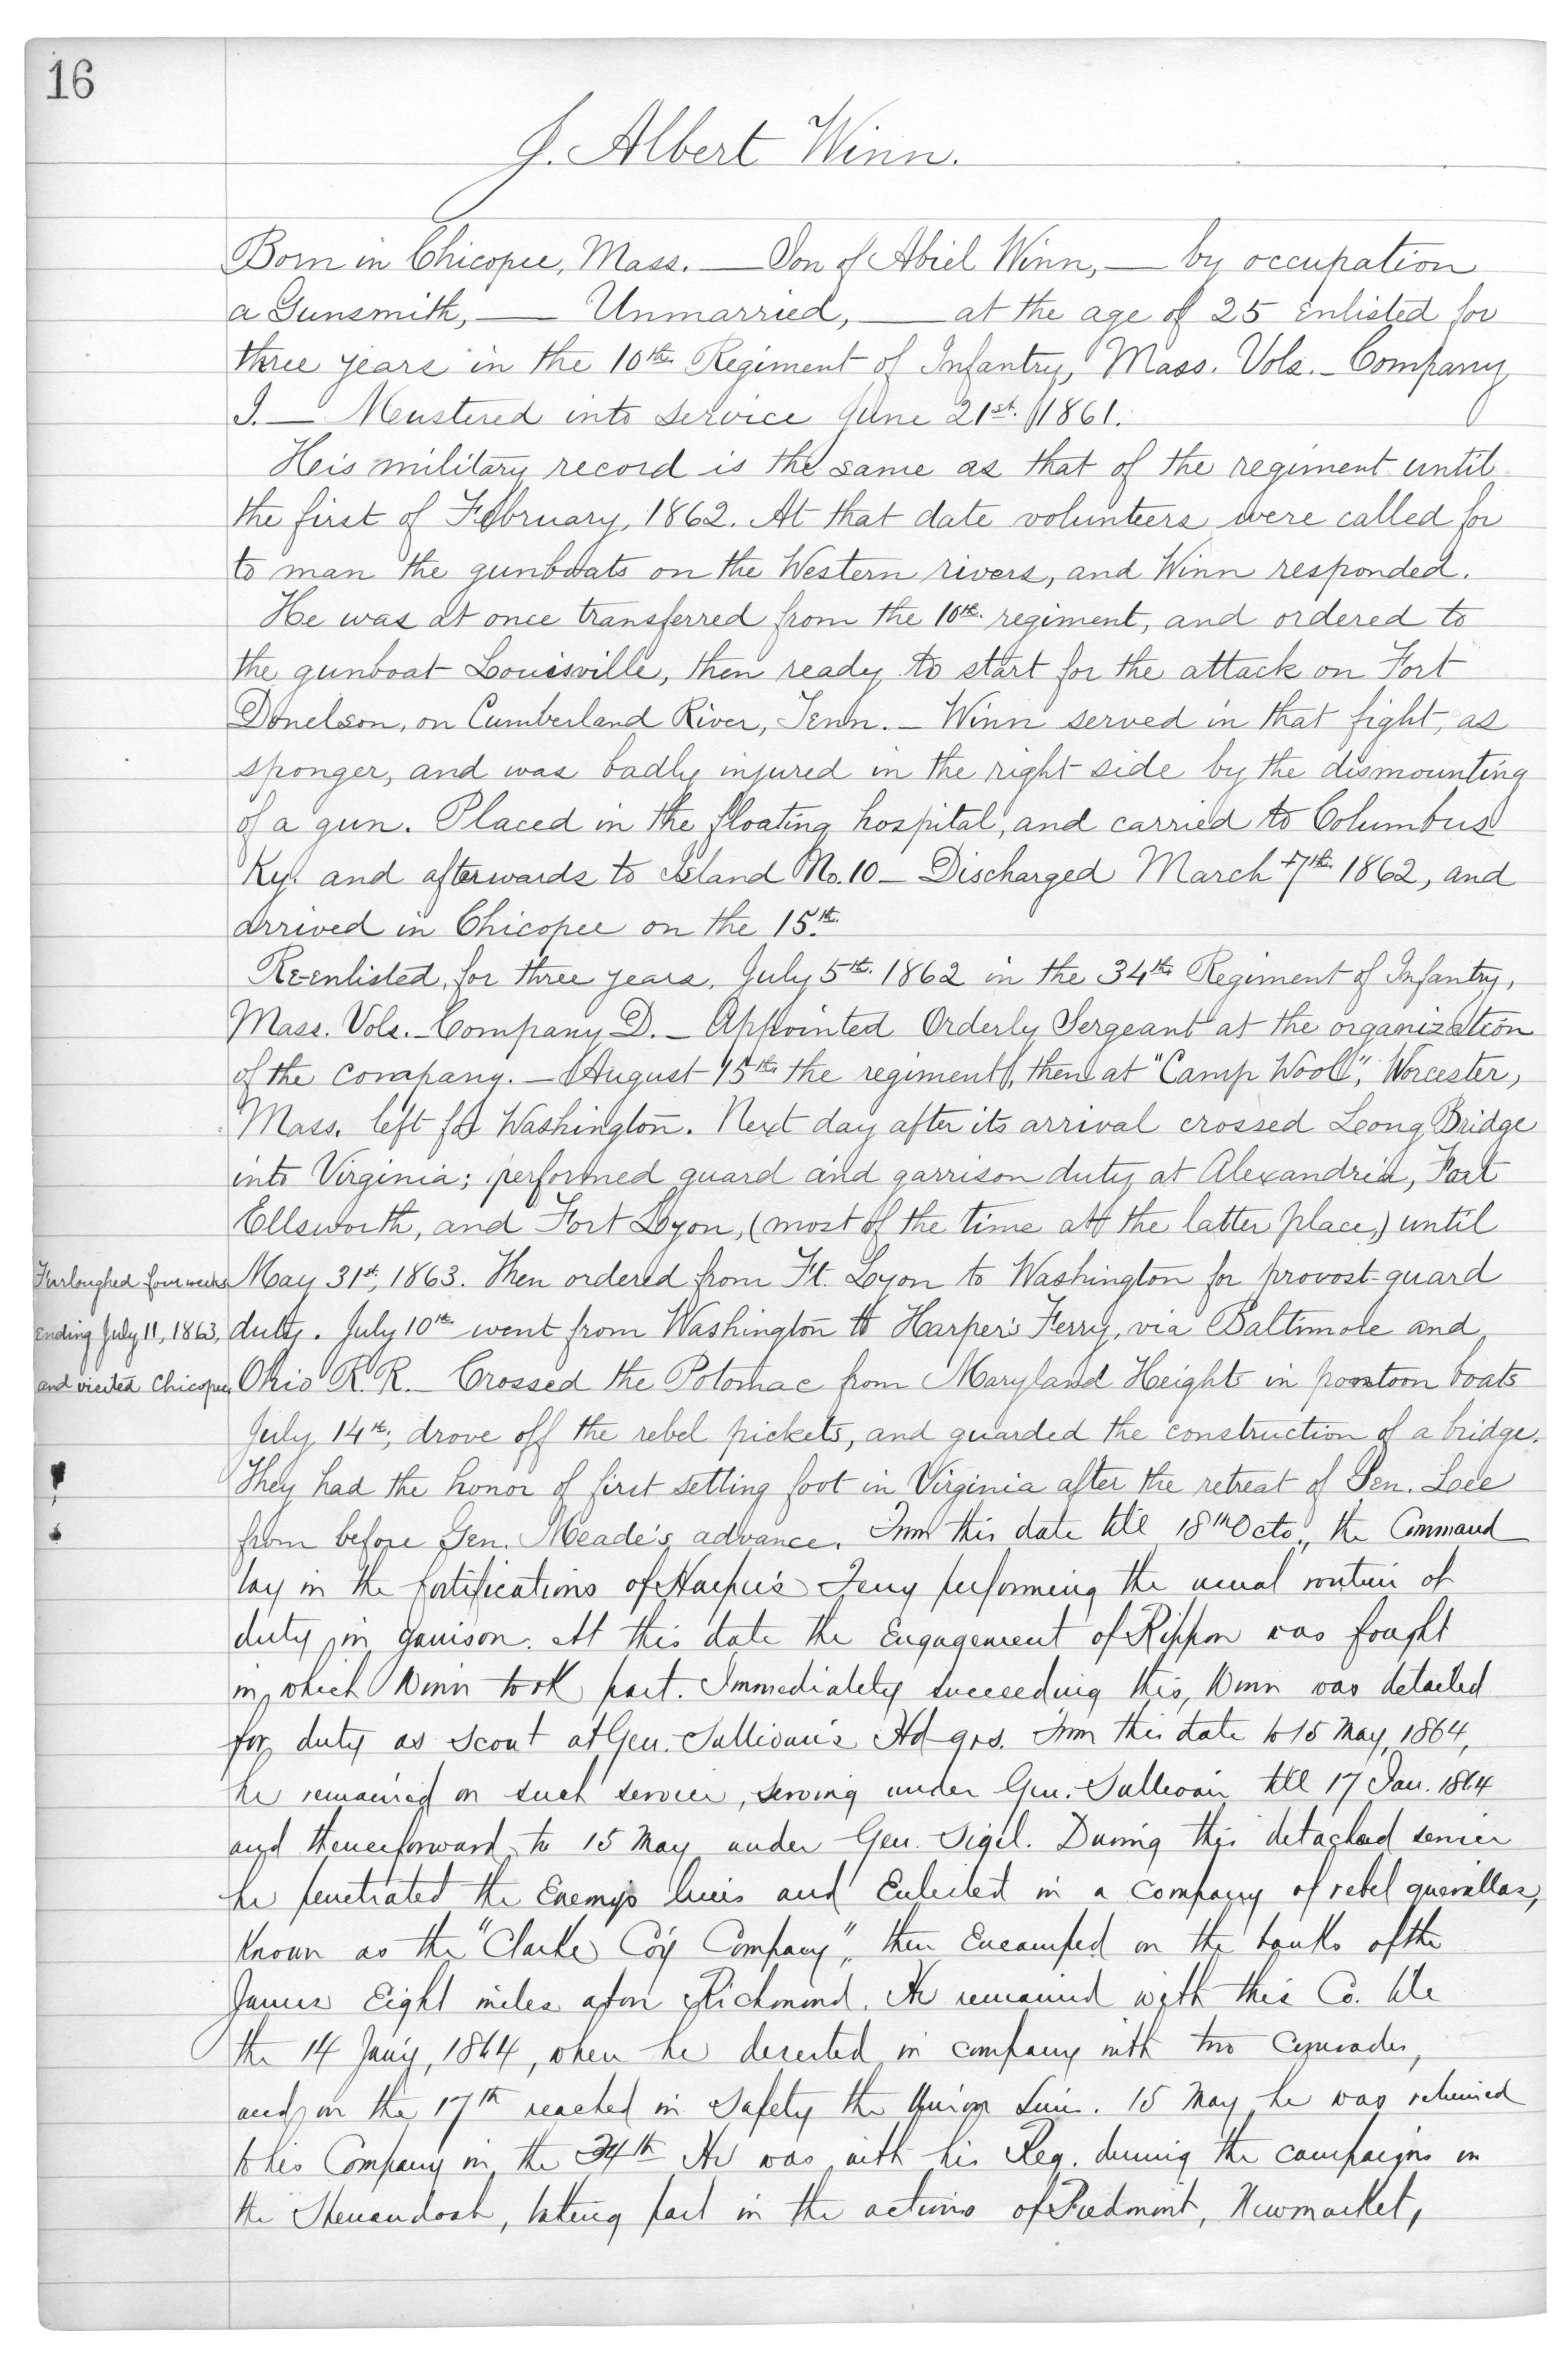 16
J. Albert Winn.
Born in Chicopee, Mass. — Son of Abiel Winn, — by occupation
a Gunsmith, — Unmarried, — at the age of 25 enlisted for
three years in the 10th Regiment of Infantry, Mass. Vols. - Company
I. — Mustered into service June 21st. 1861.
His military record is the same as that of the regiment until
the first of February, 1862. At that date volunteers were called for
to man the gunboats on the Western rivers, and Winn responded.
He was at once transferred from the 10th. regiment, and ordered to
the gunboat Louisville, then ready to start for the attack on Fort
Donelson, on Cumberland River, Tenn. - Winn served in that fight, as
sponger, and was badly injured in the right side by the dismounting
of a gun. Placed in the floating hospital, and carried to Columbus
Ky. and afterwards to Island No. 10 - Discharged March 7th. 1862, and
arrived in Chicopee on the 15.th
Re-enlisted, for three years, July 5th. 1862 in the 34th Regiment of Infantry,
Mass. Vols. - Company D. - Appointed Orderly Sergeant at the organization
of the company. - August 15th the regiment, then at "Camp Wool", Worcester,
Mass. left for Washington. Next day after its arrival crossed Long Bridge
into Virginia; performed guard and garrison duty at Alexandria, Fort
Ellsworth, and Fort Lyon, (most of the time at the latter place,) until
Furloughed four weeks May 31st, 1863. Then ordered from Ft. Lyon to Washington for provost-guard
ending July 11, 1863, duty. July 10th went from Washington to Harper's Ferry, via Baltimore and
and visited Chicopee. Ohio R.R. - Crossed the Potomac from Maryland Heights in pontoon boats
July 14th; drove off the rebel pickets, and guarded the construction of a bridge.
They had the honor of first setting foot in Virginia after the retreat of Gen. Lee
from before Gen. Meade's advance. From this date till 18th Octo., the Command
lay in the fortifications of Harper's Ferry performing the usual routine of
duty in garrison. At this date the Engagement of Rippon was fought
in which Winn took part. Immediately succeeding this, Winn was detailed
for duty as Scout at Gen. Sullivan's Hd-qrs. From this date to 15 May, 1864,
he remained on such service, serving under Gen. Sullivan till 17 Jan. 1864
and thenceforward to 15 May under Gen. Sigel. During this detached service
he penetrated the Enemy's lines and Enlisted in a Company of rebel guerillas,
known as the "Clarke Co'y Company", then Encamped on the banks of the
James Eight miles Richmond. He remained with this Co. till
the 14 Jan'y, 1864, when he deserted in company with two Comrades,
and on the 17th reached in safety the Union Lines. 15 May he was returned
to his Company in the 34th He was with his Reg. during the campaigns in
the Shenandoah, taking part in the actions of Piedmont, Newmarket,